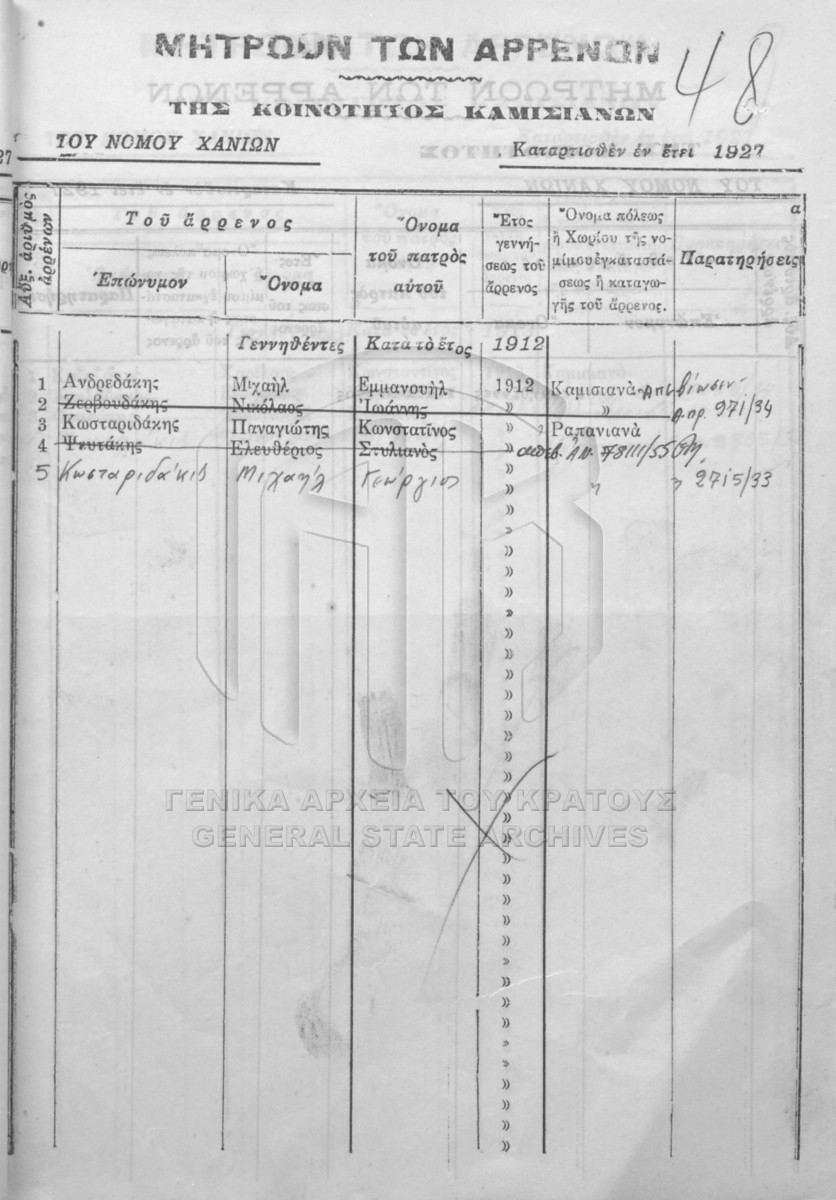 ΜΗΤΡΩΟΝ ΤΩΝ ΑΡΡΕΝΩΝ
48
ΤΗΣ ΚΟΙΝΟΤΗΤΟΣ ΚΑΜΙΣΙΑΝΩΝ
ΤΟΥ ΝΟΜΟΥ ΧΑΝΙΩΝ
Καταρτισθὲν ἐν ἔτει 1927
α
Αὔξ. ἀριθμὸς ἀρρένων
Τοῦ ἄρρενος
Ἐπώνυμον
Ὄνομα
Ὄνομα
τοῦ πατρὸς
αὐτοῦ
Ἔτος
γεννή-
σεως τοῦ
ἄρρενος
Ὄνομα πόλεως
ἢ Χωρίου τῆς νο-
μίμου ἐγκαταστά-
σεως ἢ καταγω-
γῆς τοῦ ἄρρενος.
Παρατηρήσεις
Γεννηθέντες Κατὰ τὸ ἔτος 1912
1 Ανδρεδάκης Μιχαὴλ Εμμανουὴλ 1912 Καμισιανὰ Απεβίωσεν
2 Ζερβουδάκης Νικόλαος Ἰωάννης » » Α.πρ. 971/34
3 Κωσταριδάκης Παναγιώτης Κωνστατῖνος » Ραπανιανὰ
4 Ψευτάκης Ελευθέριος Στυλιανὸς »
5 Κωσταριδάκις Μιχαήλ Γεώργιος » » » 2715/33
ΓΕΝΙΚΑ ΑΡΧΕΙΑ ΤΟΥ ΚΡΑΤΟΥΣ
GENERAL STATE ARCHIVES